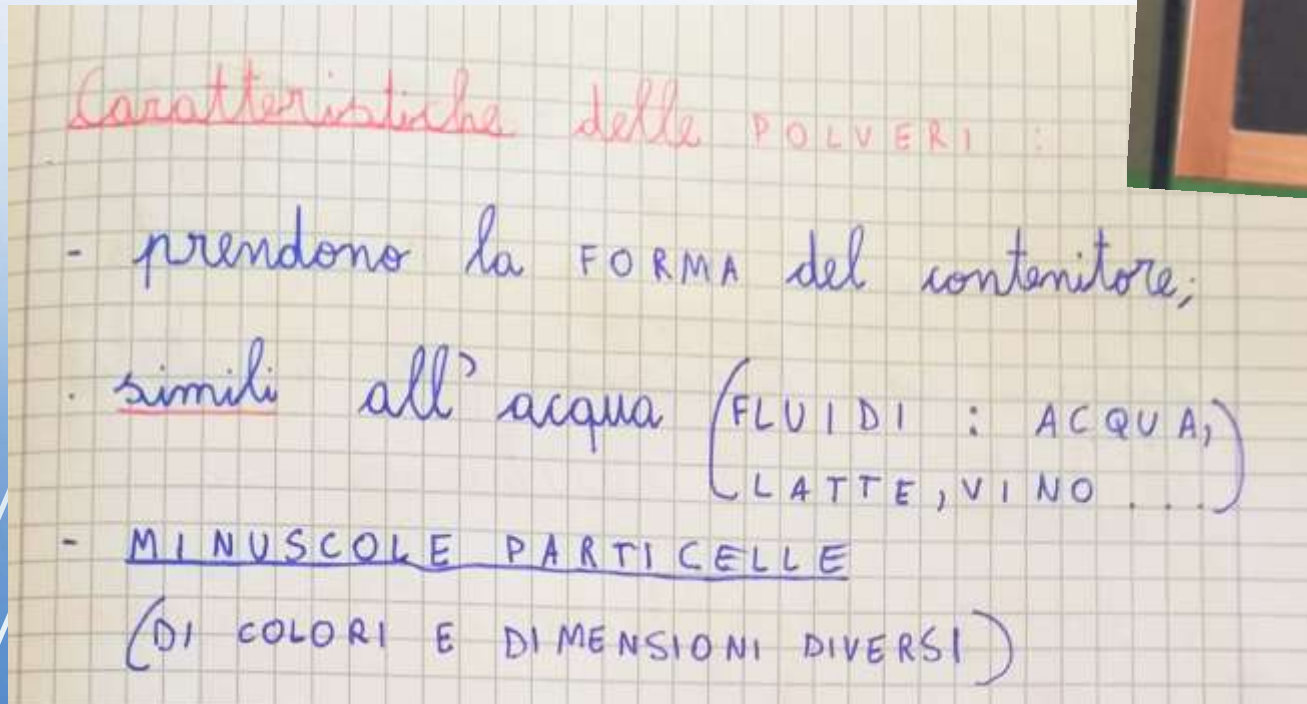 Caratteristiche delle POLVERI :
- prendono la FORMA del contenitore;
. simili all' acqua (FLUIDI : ACQUA,
LATTE, VINO ...)
- MINUSCOLE PARTICELLE
(DI COLORI E DIMENSIONI DIVERSI)